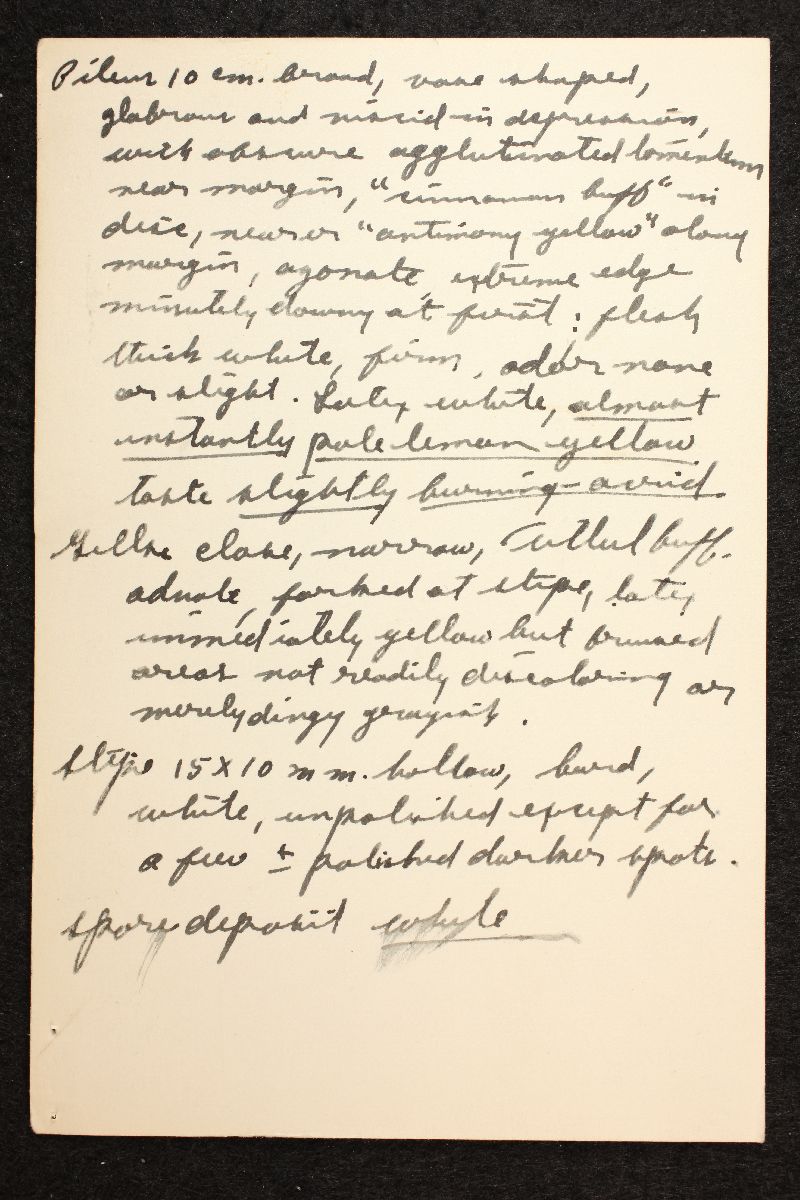 Pileus 10 cm. broad, vase shaped,
glabrous and viscid in depression,
with obscure agglutinated tomentum
near margin, "cinnamon buff" in
disc, nearer "antimony yellow" along
margin, azonate, extreme edge
minutely downy at first; flesh
thick white, firm, odor none
or slight. Latex white, almost
instantly pale lemon yellow
taste slightly burning-acrid.
Gills close, narrow, buff.
adnate, forked at stipe, latex
immediately yellow but bruised
areas not readily discoloring or
merely dingy grayish.
Stipe 15 X 10 mm. hollow, hard,
white, unpolished except for
a few ± polished darker spots.
spore deposit white